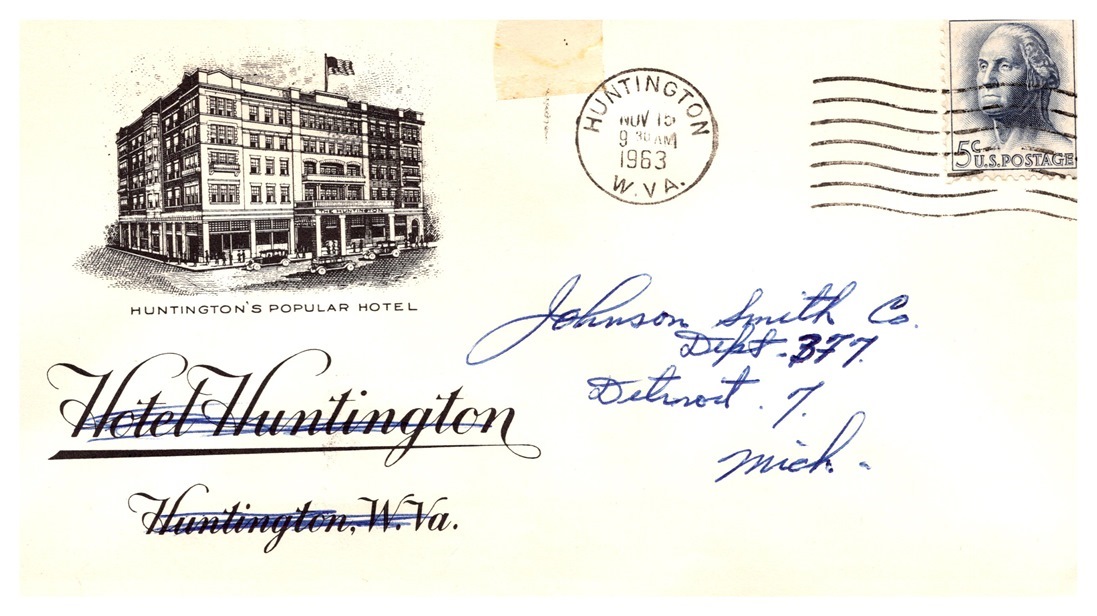 HUNTINGTON
NOV 15
9 30 AM
1963
W. VA.
5c U.S. POSTAGE
THE HUNTINGTON
HUNTINGTON'S POPULAR HOTEL
Hotel Huntington
Huntington, W. Va.
Johnson Smith Co.
Dept. 377.
Detroit. 7.
Mich.